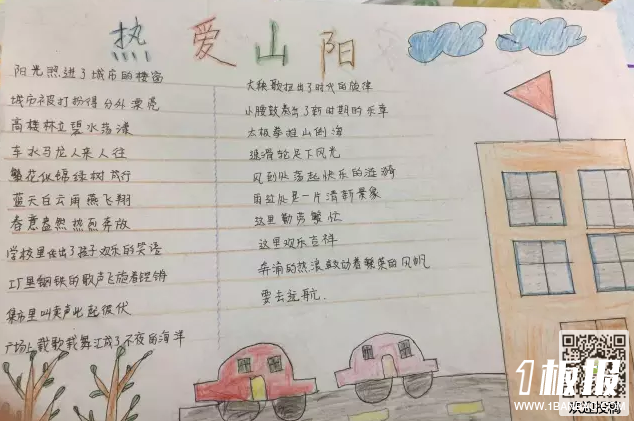 热爱山阳
阳光照进了城市的楼窗
城市被打扮得分外漂亮
高楼林立碧水荡漾
车水马龙人来人往
繁花似锦绿树成行
蓝天白云雨燕飞翔
春意盎然热烈奔放
学校里传出了孩子欢乐的笑语
工厂里钢铁的歌声飞旋着铿锵
集市里叫卖声此起彼伏
广场上载歌载舞汇成了不夜的海洋
大秧歌扭出了时代的旋律
小腰鼓奏出了新时期的乐章
太极拳推山倒海
速滑轮足下风光
到处荡起快乐的涟漪
片清新景象
这里勤劳繁忙
这里欢乐吉祥
奔涌的热浪鼓动着繁荣的风帆
要去远航
1板报
WWW.1BANBAO.COM